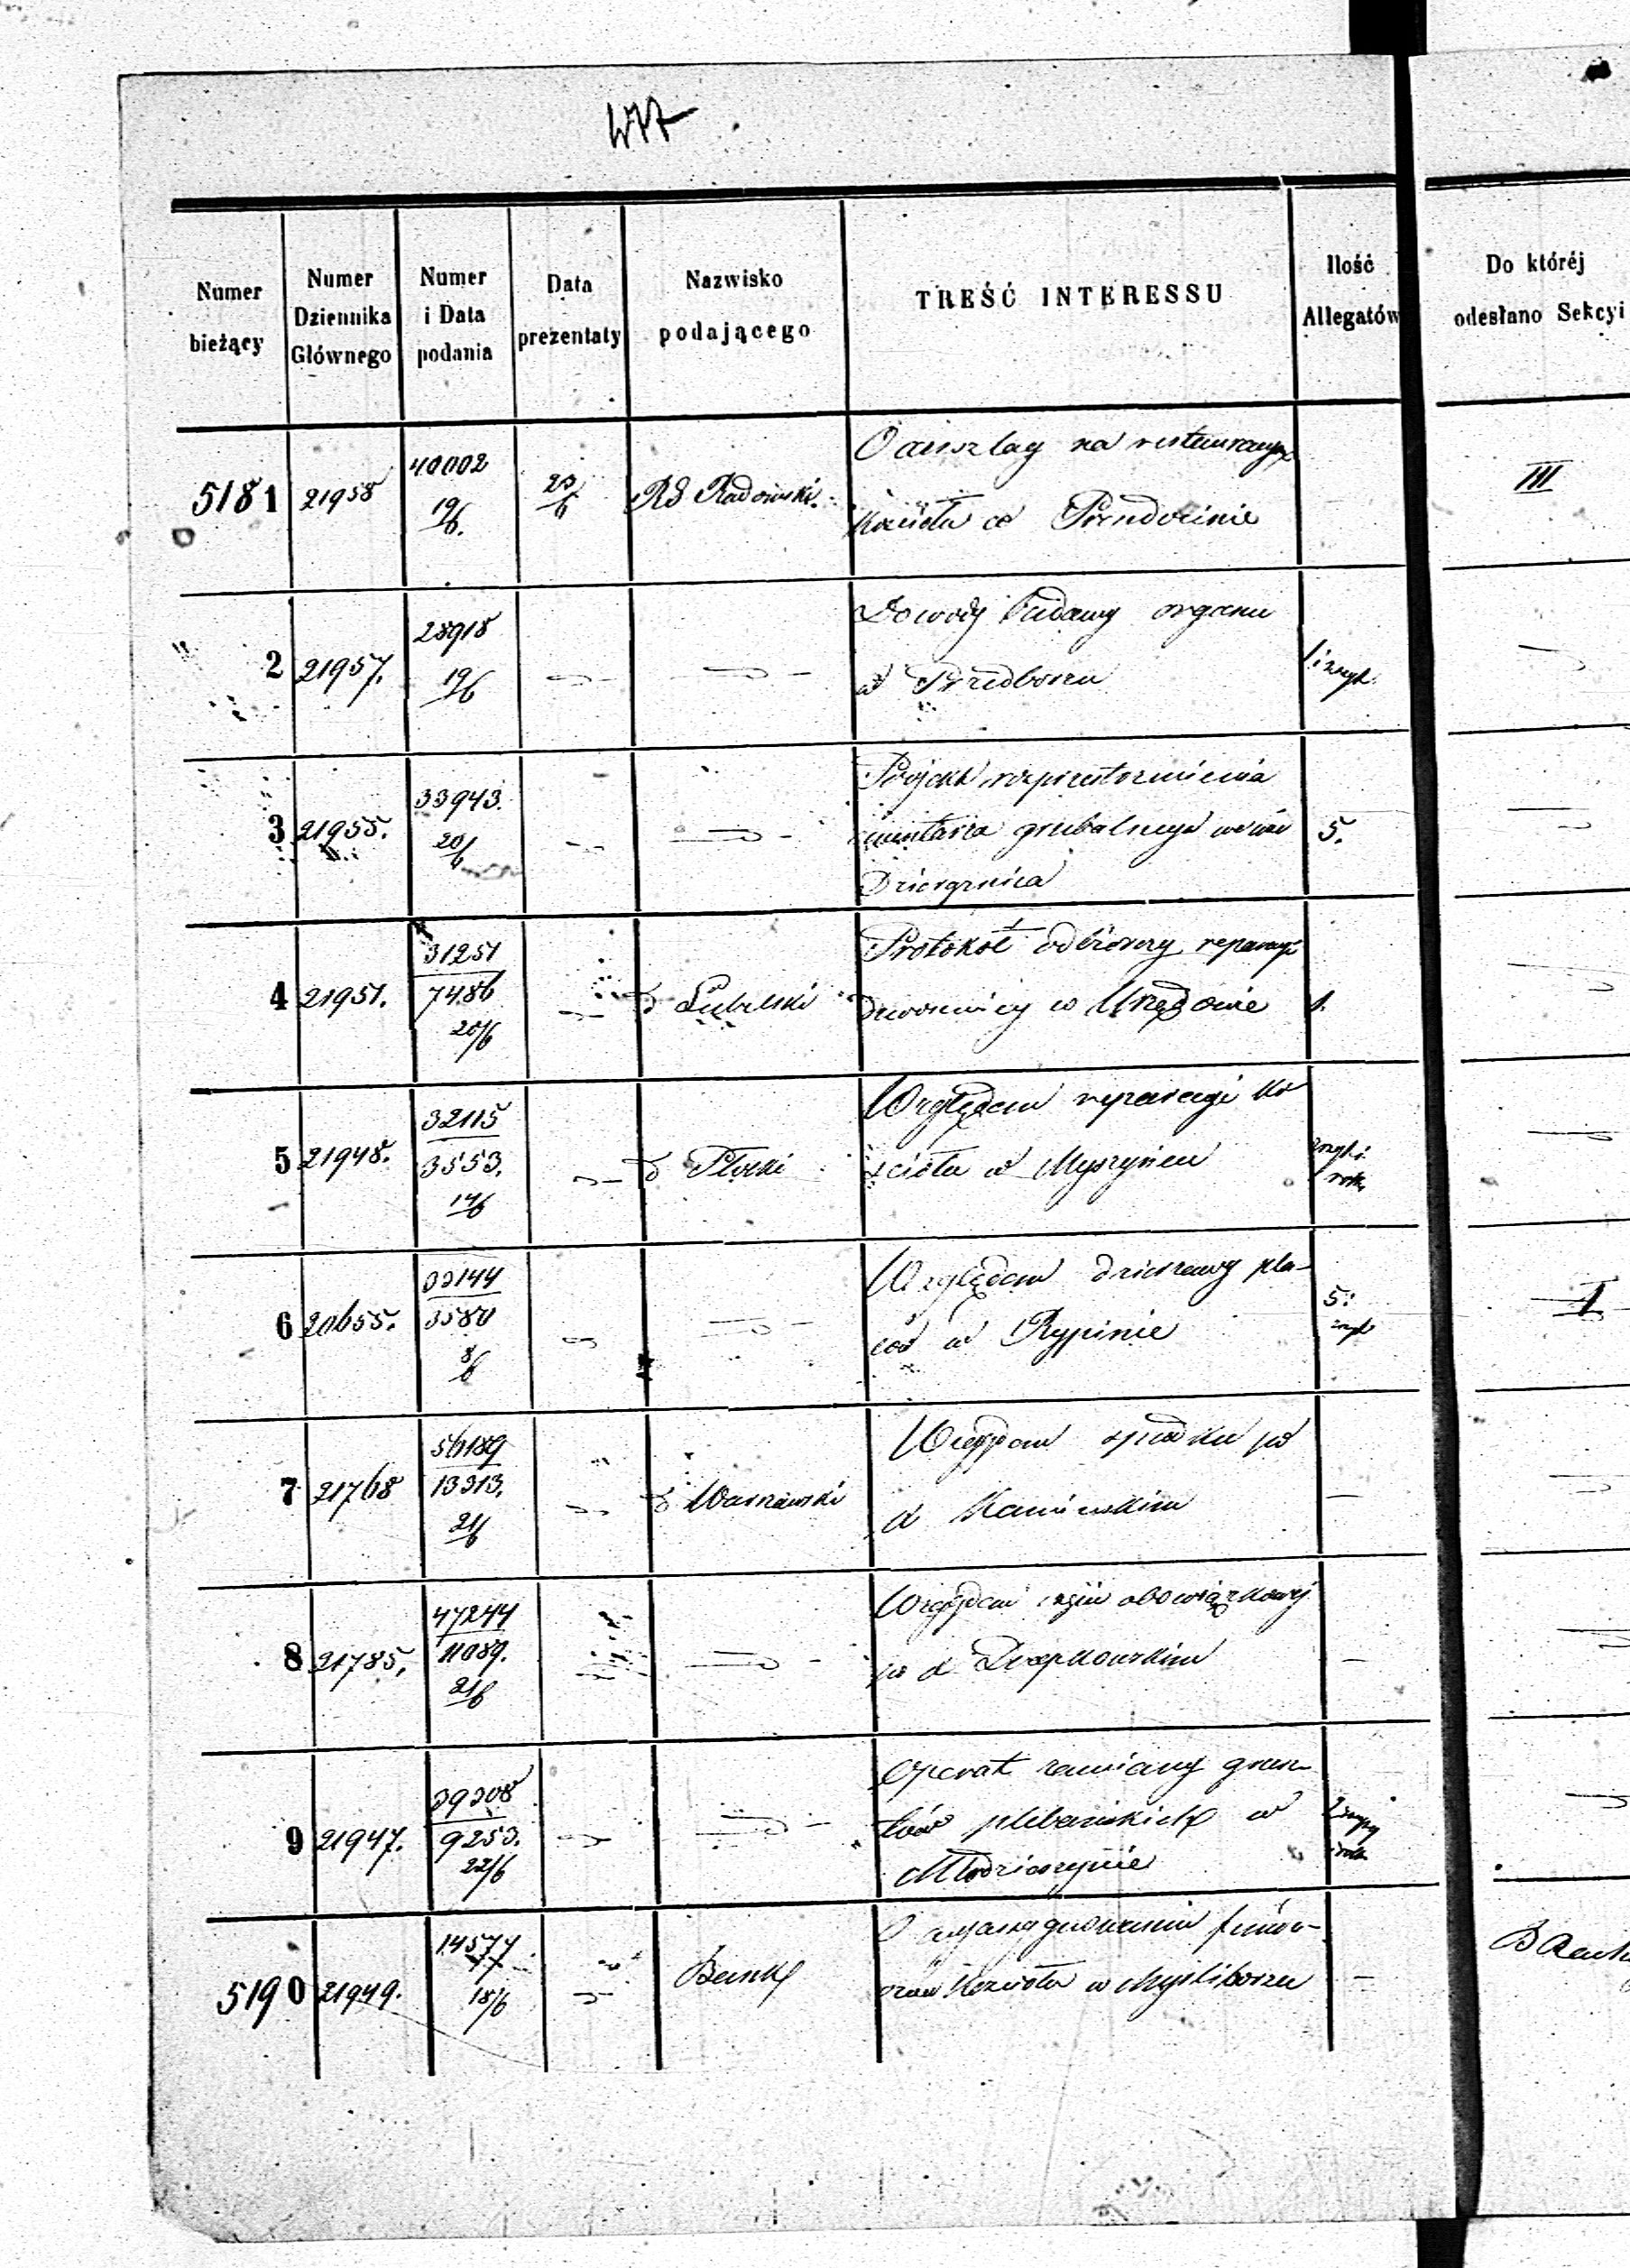 Numer bieżący
Numer Dziennika Głównego
Numer i Data podania
Data prezentaty
Nazwisko podającego
TREŚĆ INTERESSU
Ilość Allegatów
Do któréj odesłano Sekcyi
5181 21958 40002 19/6. 23/6 RG Radomski O anszlag na restauracyę III
Kościoła w Prendocinie
2 21957. 28918 19/6 Dowody budowy organu
w Przedborzu
3 21955. 33943. 20/6 Projekt rozprzestrzenienia 5.
cmentarza grzebalnego we wsi
Dzierzgznica
4 21951. 31251 7486 20/6 d Lubelski Protokół odbiorczy reparacyi 1.
dzwonnicy w Urzędowie
5 21948. 32115 3553. 14/6 d Płocki Względem reparacyi ko
ścioła w Myszyńcu
6 20655. 33144 3580 8/6 Względem dzierzawy pla- 5: I
ców w Rypinie
7 21768 56189 13313. 21/6 d Warszawski Względem spadku po
X Kaniewskim
8 21785. 47244 11089. 21/6 Względem obowiązkowej
po X
9 21947. 39308 9253. 22/6 Operat zamiany grun-
tów plebańskich w
Młodzieszynie
5190 21949. 14577 18/6 Bank O fundu-
szów Kościoła w Myśliborzu